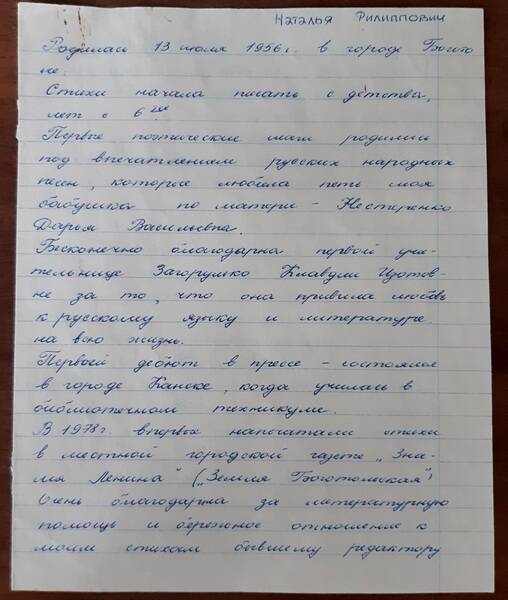 Наталья Филиппович
Родилась 13 июля 1956 г. в городе Богото
ле.
Стихи начала писать с детства,
лет с 6ти
Первые поэтические шаги родились
под впечатлением русских народных
песен, которые любила петь моя
бабушка по матери - Нестеренко
Дарья Васильевна.
Бесконечно благодарна первой учи-
тельнице Загорулько Клавдии Изотов-
не за то, что она привила любовь
к русскому языку и литературе
на всю жизнь.
Первый дебют в прессе - состоялся
в городе Канске, когда училась в
библиотечном техникуме.
В 1978 г. впервые напечатали стихи
в местной городской газете „Зна-
мя Ленина" („Земля Боготольская")
Очень благодарна за литературную
помощь и бережное отношение к
моим стихам бывшему редактору